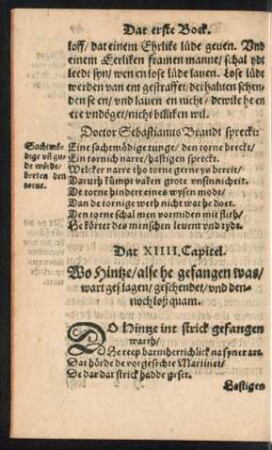 Dat erste Boek.
loff/ dat einem Ehrlike lüde geuen. Vnd
einem Eerliken framen manne/ schal ydt
leedt syn/ wen en lose lüde lauen. Lose lüde
werden van em gestraffet/ derhaluen schen-
den se en/ vnd lauen en nicht/ dewile he en
ere vndöget/ nicht billiken wil.
Doctor Sebastianus Brandt spreckt:
Sachtmö-
dige
de wörde/
breken den
torne.
Eine sachtmödige tunge/ den torne breckt/
Ein tornich narre/ hastigen spreckt.
Welcker narre tho torne gerne ys bereit/
Daruth kümpt vaken grote vnsinnicheit.
De torne hindert eines wysen mode/
Dan de tornige weth nicht wat he doet.
Den torne schal men vormiden mit flith/
He körtet des menschen leuent vnd tydt.
Dat XIIII. Capitel.
Wo Hintze/ alse he gefangen was/
wart geslagen/ geschendet/ vnd den-
noch loß quam.
DO Hintze int strick gefangen
warth/
He reep barmhertichlick na syner art.
Dat hörde de vorgesechte Martinet/
De dar dat strick hadde geset.
Lastigen